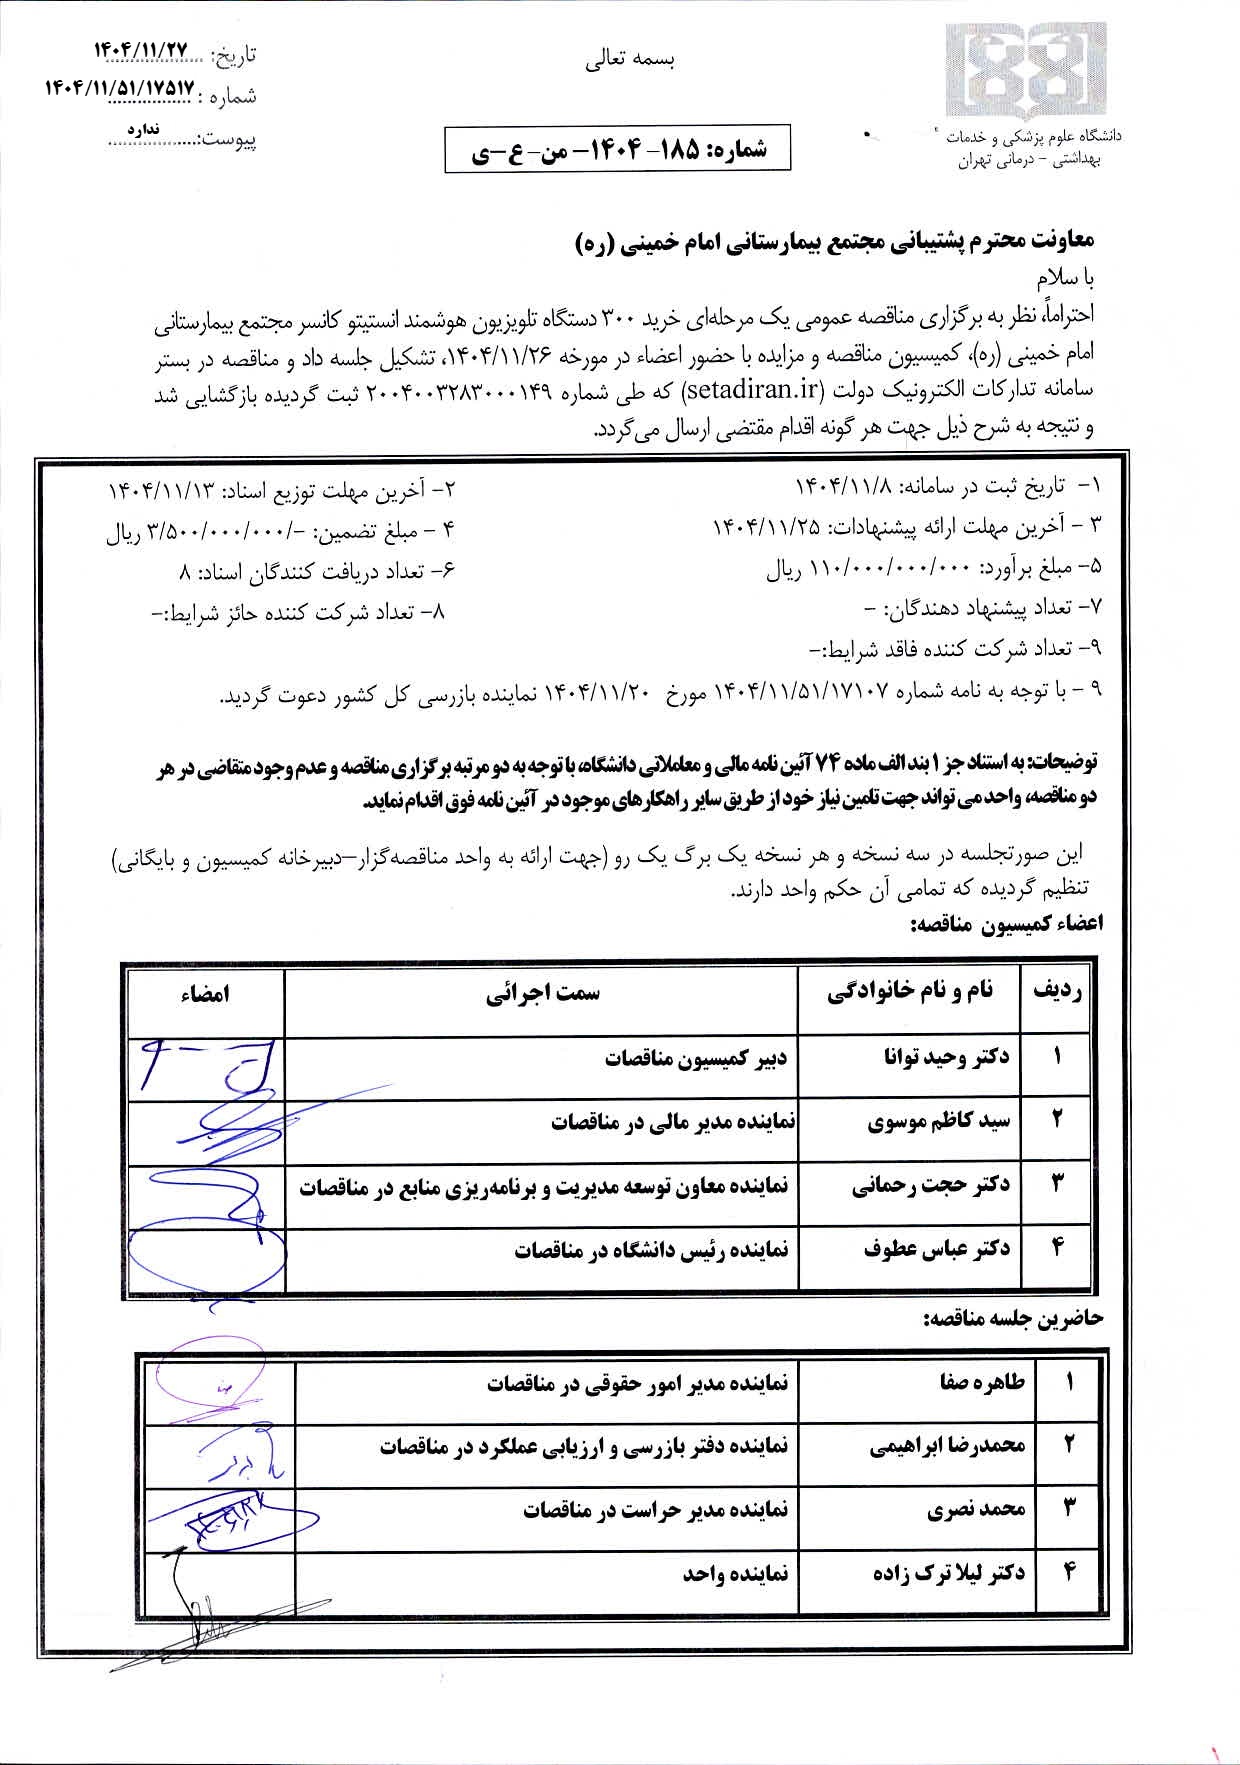 بسمه تعالی
تاریخ: ۱۴۰۴/۱۱/۲۷
شماره : ۱۴۰۴/۱۱/۵۱/۱۷۵۱۷
پیوست: ندارد
دانشگاه علوم پزشکی و خدمات
بهداشتی – درمانی تهران
شماره: ۱۸۵- ۱۴۰۴- من- ع-ی
معاونت محترم پشتیبانی مجتمع بیمارستانی امام خمینی (ره)
با سلام
احتراماً، نظر به برگزاری مناقصه عمومی یک مرحله‌ای خرید ۳۰۰ دستگاه تلویزیون هوشمند انستیتو کانسر مجتمع بیمارستانی
امام خمینی (ره)، کمیسیون مناقصه و مزایده با حضور اعضاء در مورخه ۱۴۰۴/۱۱/۲۶، تشکیل جلسه داد و مناقصه در بستر
سامانه تدارکات الکترونیک دولت (setadiran.ir) که طی شماره ۲۰۰۴۰۰۳۲۸۳۰۰۰۱۴۹ ثبت گردیده بازگشایی شد
و نتیجه به شرح ذیل جهت هر گونه اقدام مقتضی ارسال می‌گردد.
۱- تاریخ ثبت در سامانه: ۱۴۰۴/۱۱/۸
۲- آخرین مهلت توزیع اسناد: ۱۴۰۴/۱۱/۱۳
۳ - آخرین مهلت ارائه پیشنهادات: ۱۴۰۴/۱۱/۲۵
۴ - مبلغ تضمین: -/۳/۵۰۰/۰۰۰/۰۰۰ ریال
۵- مبلغ برآورد: ۱۱۰/۰۰۰/۰۰۰/۰۰۰ ریال
۶- تعداد دریافت کنندگان اسناد: ۸
۷- تعداد پیشنهاد دهندگان: -
۸- تعداد شرکت کننده حائز شرایط:-
۹- تعداد شرکت کننده فاقد شرایط:-
۹ - با توجه به نامه شماره ۱۴۰۴/۱۱/۵۱/۱۷۱۰۷ مورخ ۱۴۰۴/۱۱/۲۰ نماینده بازرسی کل کشور دعوت گردید.
توضیحات: به استناد جز ۱ بند الف ماده ۷۴ آئین نامه مالی و معاملاتی دانشگاه، با توجه به دو مرتبه برگزاری مناقصه و عدم وجود متقاضی در هر
دو مناقصه، واحد می تواند جهت تامین نیاز خود از طریق سایر راهکارهای موجود در آئین نامه فوق اقدام نماید.
این صورتجلسه در سه نسخه و هر نسخه یک برگ یک رو (جهت ارائه به واحد مناقصه‌گزار-دبیرخانه کمیسیون و بایگانی)
تنظیم گردیده که تمامی آن حکم واحد دارند.
اعضاء کمیسیون مناقصه:
ردیف نام و نام خانوادگی سمت اجرائی امضاء
۱ دکتر وحید توانا دبیر کمیسیون مناقصات
۲ سید کاظم موسوی نماینده مدیر مالی در مناقصات
۳ دکتر حجت رحمانی نماینده معاون توسعه مدیریت و برنامه‌ریزی منابع در مناقصات
۴ دکتر عباس عطوف نماینده رئیس دانشگاه در مناقصات
حاضرین جلسه مناقصه:
۱ طاهره صفا نماینده مدیر امور حقوقی در مناقصات
۲ محمدرضا ابراهیمی نماینده دفتر بازرسی و ارزیابی عملکرد در مناقصات
۳ محمد نصری نماینده مدیر حراست در مناقصات
۴ دکتر لیلا ترک زاده نماینده واحد
۱